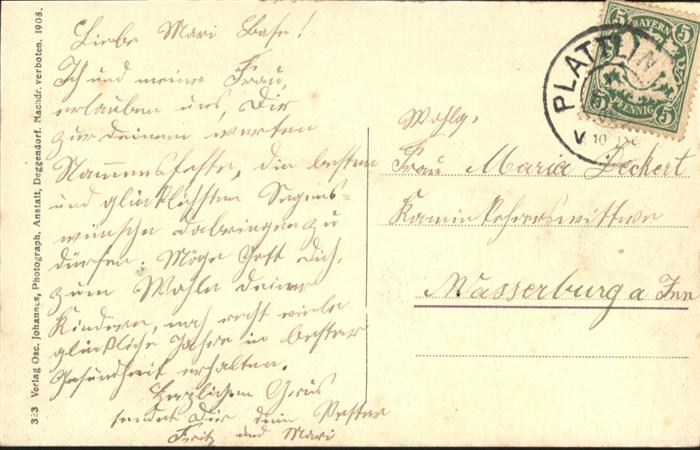 Liebe Mari Base!
Ich und meine Frau,
erlauben uns, Dir
zu deinem werten
Nammensfeste, die besten
und glücklichsten Segens-
wünsche darbringen zu
dürfen. Möge Gott Dich,
zum Wohle deiner
Kindern, noch recht viele
glückliche Jahre in bester
Gesundheit erhalten.
Herzlichen Grus
sendet Dir dein Vetter
Fritz und Mari
Wohlg.
Frau Maria Deckert
Kaminkehrerswittwe
Wasserburg a Inn
5 BAYERN 5
5 PFENNIG 5
PLATTLIN
V. 10
323 Verlag Osc. Johannes, Photograph. Anstalt, Deggendorf. Nachdr. verboten. 1908.